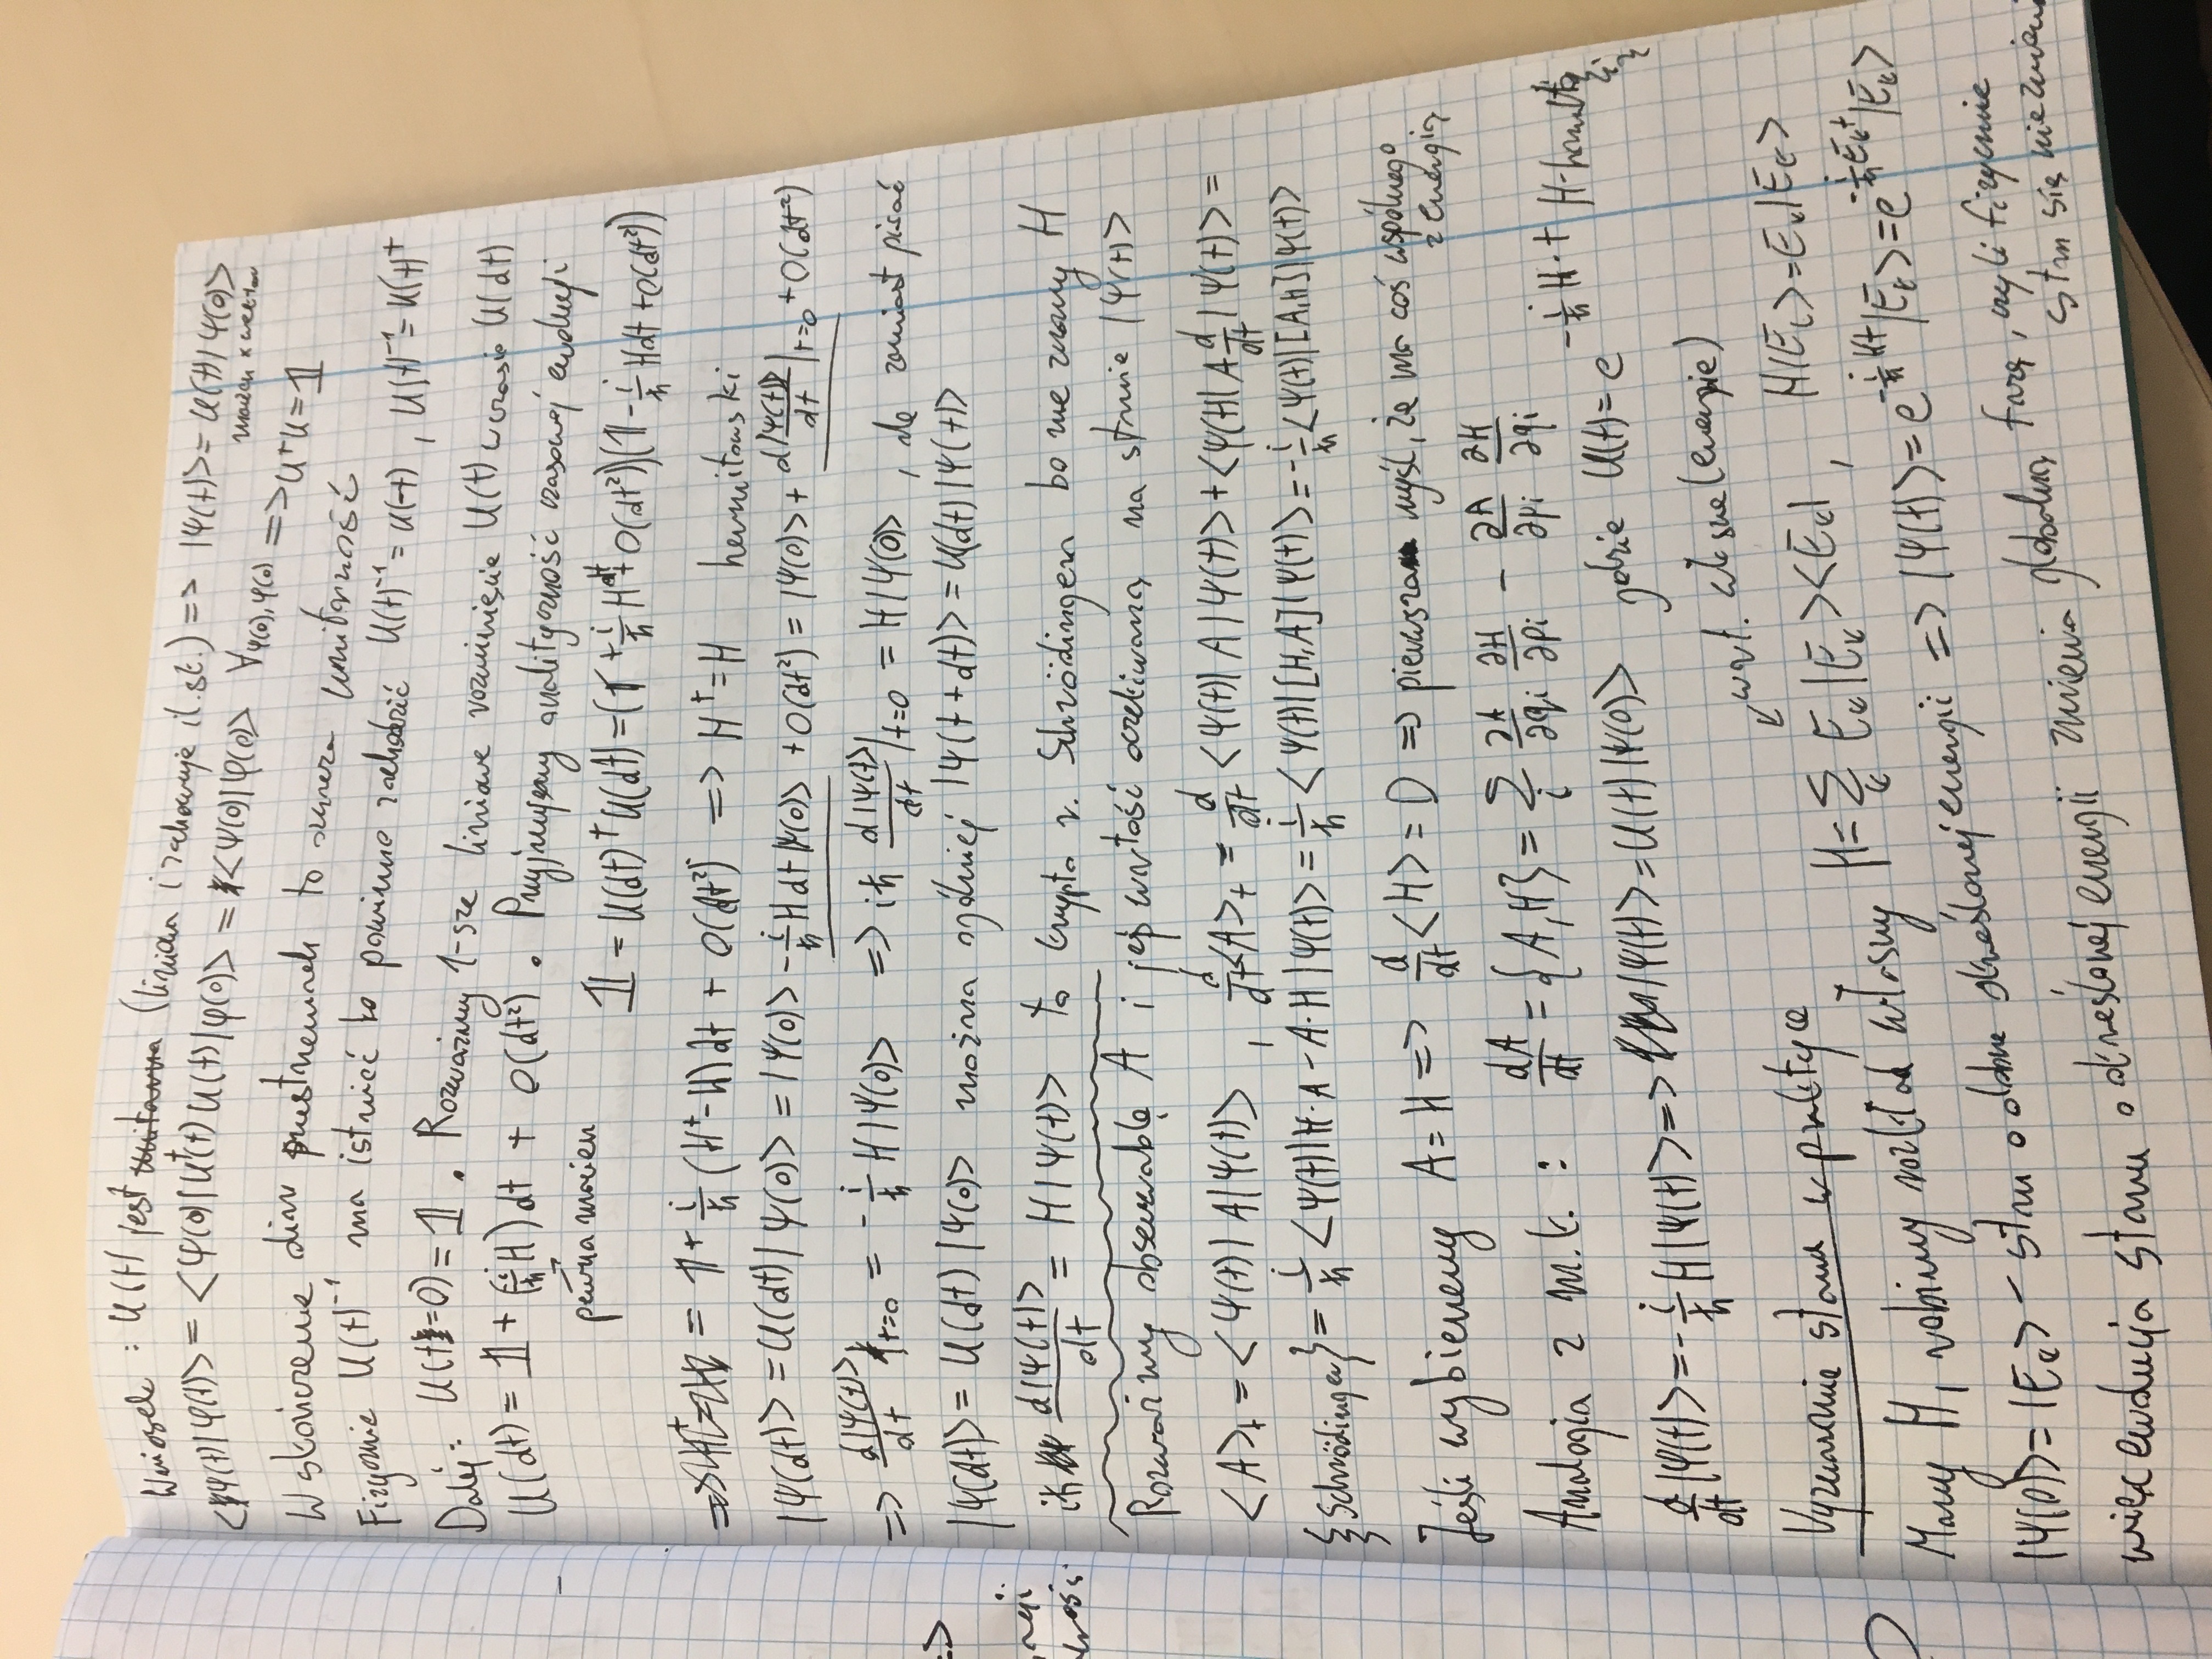 Wniosek : U(t) jest unitarna (liniowa i zachowuje il.sk.) => |Ψ(t)> = U(t)|Ψ(0)>
macierz x wektor
<Ψ(t)|φ(t)> = <Ψ(0)|U†(t) U(t)|φ(0)> = <Ψ(0)|φ(0)> ∀Ψ(0),φ(0) => U†U = 𝟙
W skończenie dim przestrzeniach to oznacza unitarność
Fizycznie U(t)⁻¹ ma istnieć to powinno zachodzić U(t)⁻¹ = U(-t) , U(t)⁻¹ = U(t)†
Dalej: U(t=0) = 𝟙 . Rozważmy 1-sze liniowe rozwinięcie U(t) w czasie U(dt)
U(dt) = 𝟙 + (-i/ħ H) dt + O(dt²) . Przyjmujemy analityczność czasowej ewolucji
pewna macierz
𝟙 = U(dt)†U(dt) = (𝟙 + i/ħ H†dt + O(dt²))(𝟙 - i/ħ Hdt + O(dt²))
= 𝟙 + i/ħ (H† - H) dt + O(dt²) => H† = H hermitowski
|Ψ(dt)> = U(dt)|Ψ(0)> = |Ψ(0)> - i/ħ H dt |Ψ(0)> + O(dt²) = |Ψ(0)> + d|Ψ(t)>/dt |t=0 + O(dt²)
=> d|Ψ(t)>/dt |t=0 = - i/ħ H|Ψ(0)> => iħ d|Ψ(t)>/dt |t=0 = H|Ψ(0)> , ale zamiast pisać
|Ψ(dt)> = U(dt) |Ψ(0)> można ogólniej |Ψ(t+dt)> = U(dt)|Ψ(t)>
iħ d|Ψ(t)>/dt = H|Ψ(t)> to krypto r. Schrödingera bo nie znamy H
Rozważmy obserwablę A i jej wartość oczekiwaną na stanie |Ψ(t)>
<A>t = <Ψ(t)|A|Ψ(t)> , d/dt <A>t = d/dt <Ψ(t)|A|Ψ(t)> + <Ψ(t)|A d/dt |Ψ(t)> =
{Schrödinger} = i/ħ <Ψ(t)|H·A - A·H|Ψ(t)> = i/ħ <Ψ(t)|[H,A]|Ψ(t)> = - i/ħ <Ψ(t)|[A,H]|Ψ(t)>
Jeśli wybierzemy A = H => d/dt <H> = 0 => pierwsza myśl, że ma coś wspólnego
z energią
Analogia z m.k. : dA/dt = {A,H} = Σi ∂A/∂qi ∂H/∂pi - ∂A/∂pi ∂H/∂qi
d/dt |Ψ(t)> = - i/ħ H|Ψ(t)> => |Ψ(t)> = U(t)|Ψ(0)> gdzie U(t) = e^(-i/ħ H·t) H-hamiltonian
wart. własne (energie)
Wyznaczanie stanu w praktyce
Mamy H, robimy rozkład własny H = Σk Ek|Ek><Ek| , H|Ek> = Ek|Ek>
|Ψ(0)> = |Ek> - stan o dobrze określonej energii => |Ψ(t)> = e^(-i/ħ Ht)|Ek> = e^(-i/ħ Ek t)|Ek>
więc ewolucja stanu o określonej energii zmienia globalną fazę, czyli fizycznie
stan się nie zmieni